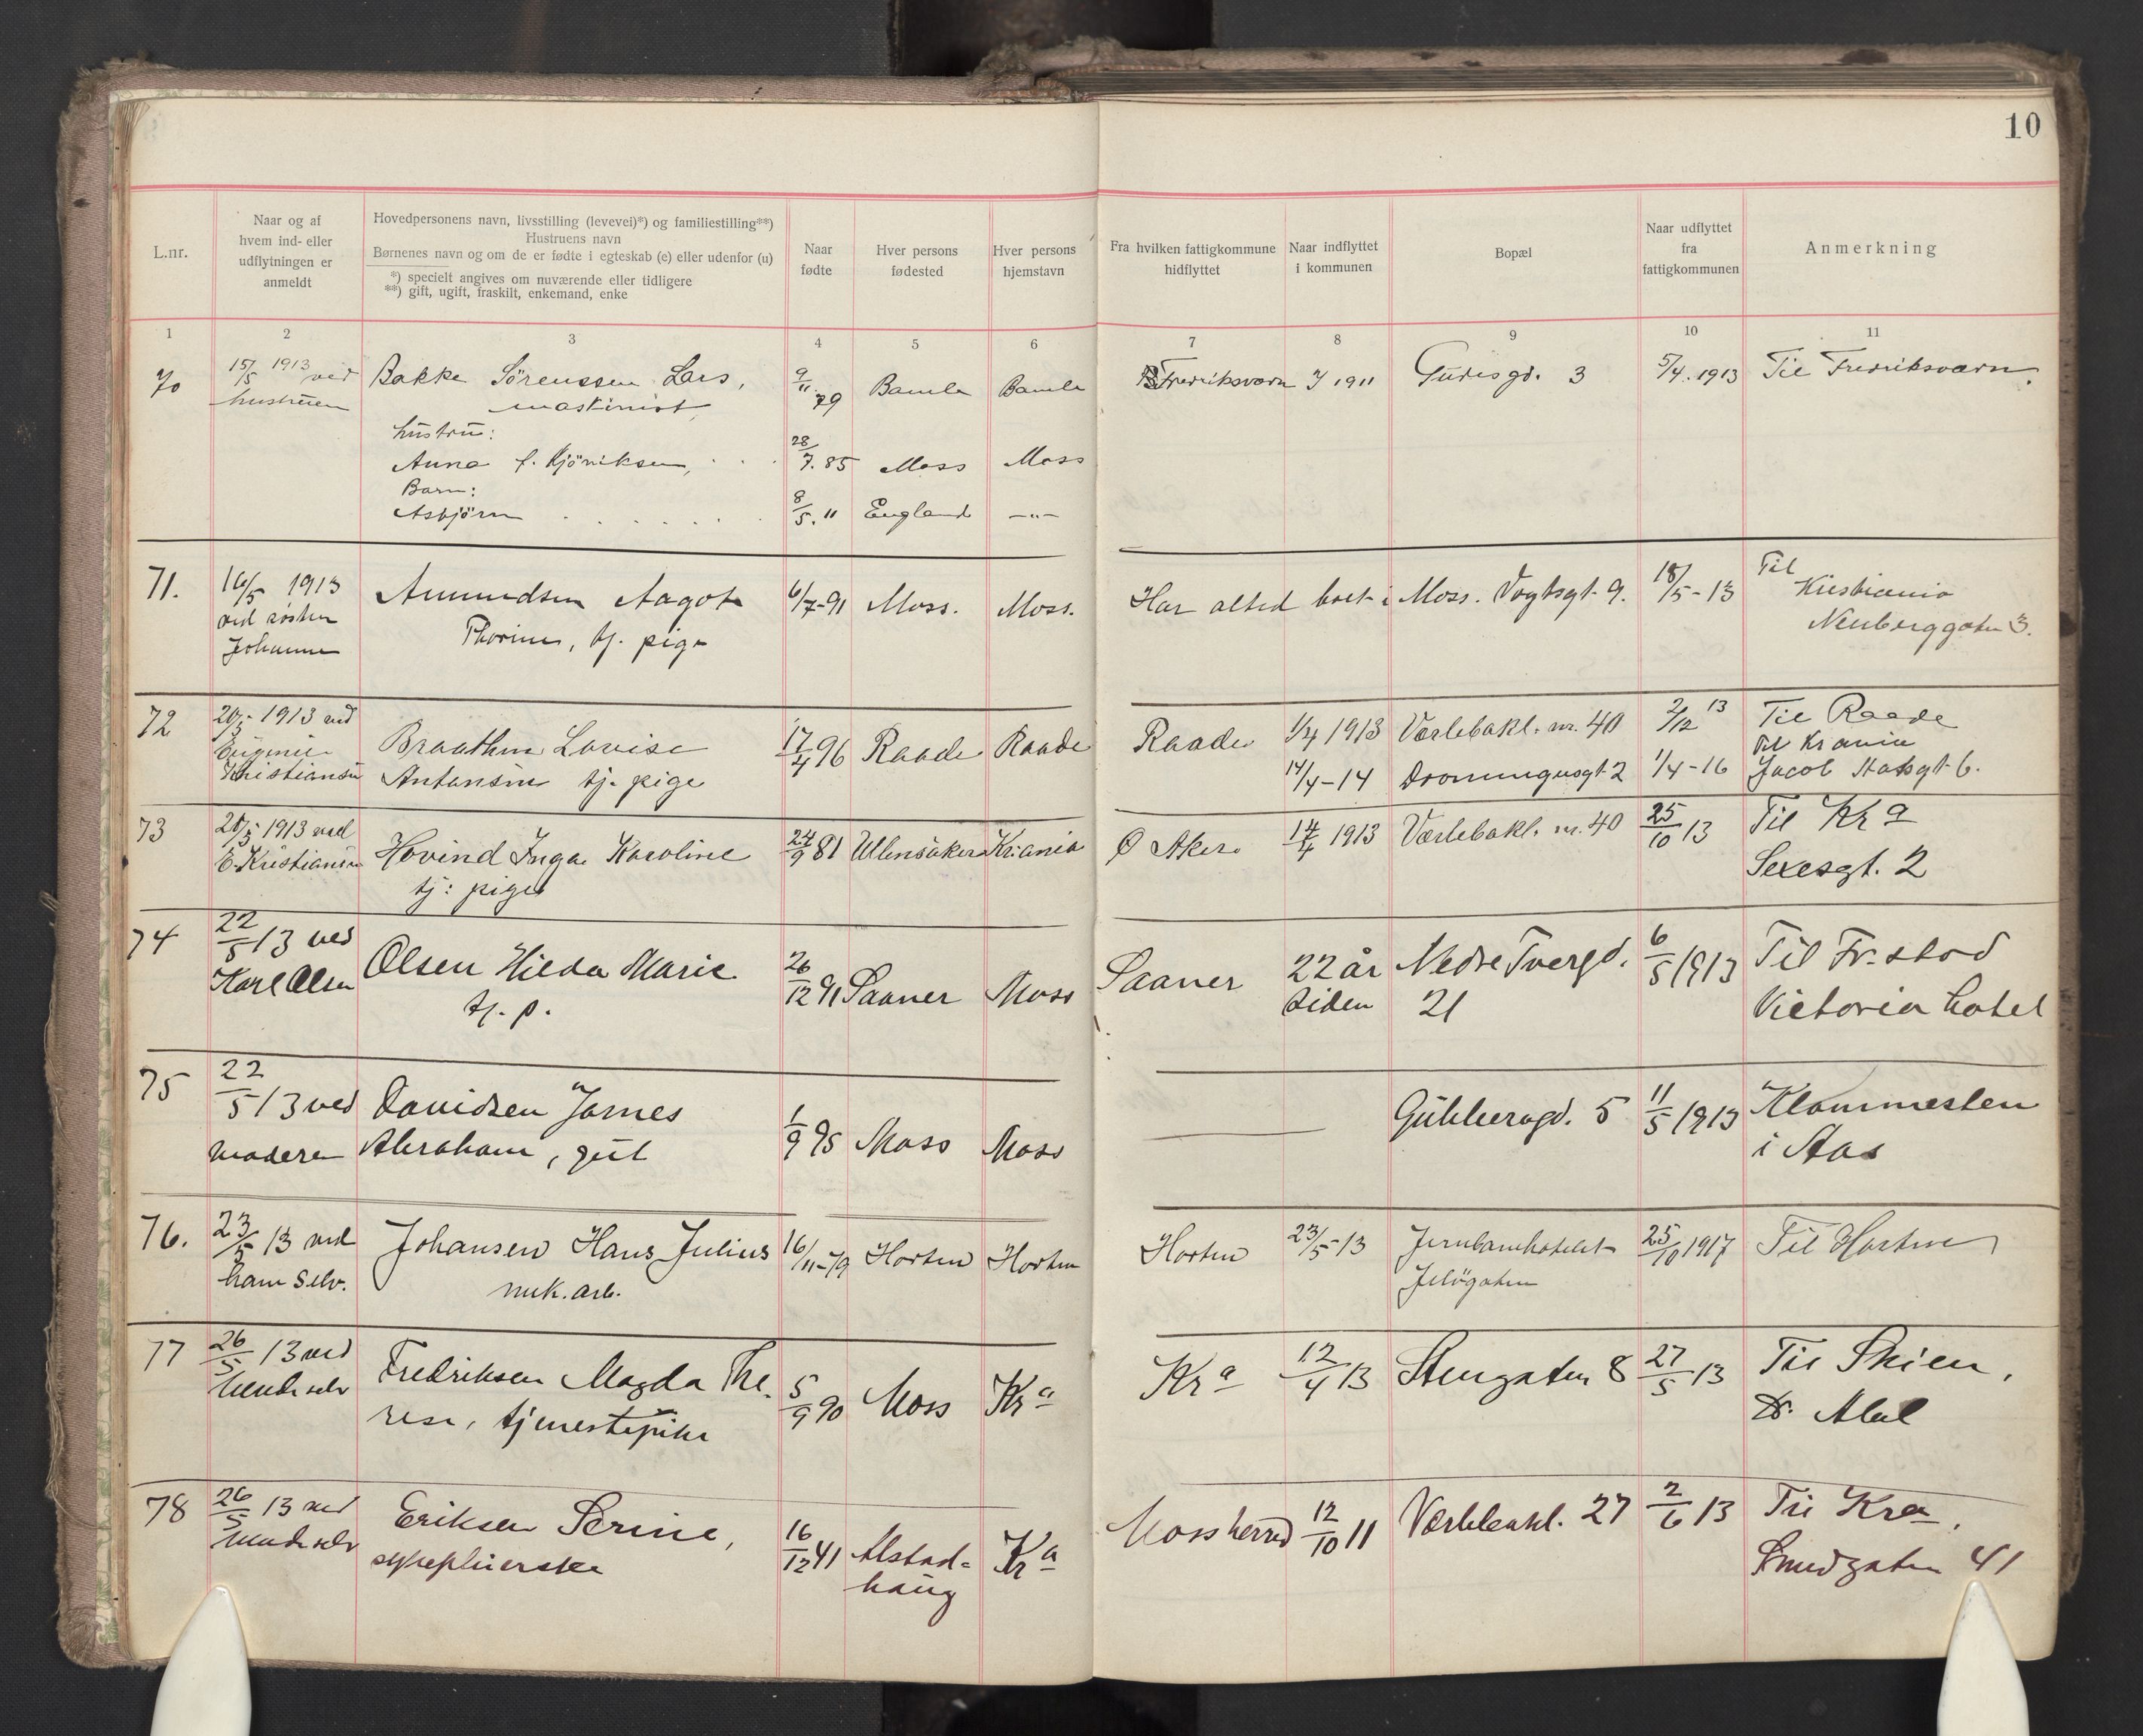 10
L.nr.
Naar og af
hvem ind- eller
udflytningen er
anmeldt
Hovedpersonens navn, livsstilling (levevei)*) og familiestilling**)
Hustruens navn
Børnenes navn og om de er fødte i egteskab (e) eller udenfor (u)
*) specielt angives om nuværende eller tidligere
**) gift, ugift, fraskilt, enkemand, enke
Naar
fødte
Hver persons
fødested
Hver persons
hjemstavn
Fra hvilken fattigkommune
hidflyttet
Naar indflyttet
i kommunen
Bopæl
Naar udflyttet
fra
fattigkommunen
Anmerkning
1 2 3 4 5 6 7 8 9 10 11
70 15/5 1913 ved Bakke Sörenssen Lars, 9/11 79 Bamle Bamle Fredriksværn 1911 3 5/4. 1913 Til Fredriksværn.
hustruen maskinist
hustru:
Anna f. 28/7. 85 Moss Moss
Barn:
Asbjörn 8/5. 11 England —"—
71. 16/5 1913 Amundsen Aagot 6/7-91 Moss. Moss. Har altid boet i Moss. Vogtsgt. 9. 18/5-13 Til
ved søster Thorine, tj. pige Kristiania
Johanne Neuberggaten 3.
72 20/5 1913 ved Braathen Lovise 17/4 96 Raade Raade Raade 1/4 1913 Værlebakk. nr. 40 2/12 13 Til Raade
Eugenie Antonsine tj. pige Til Krania
Kristiansen 14/4-14 Dronningensgt 2 1/4-16 Jacob Aalsgt 6.
73 20/5 1913 ved Hovind Inga Karoline 24/9 81 Ullensaker Kriania Ø Aker 14/4 1913 Værlebakk. nr. 40 25/10 13 Til Kr a
E. Kristiansen tj: pige Sexesgt. 2
74 22/5 13 ved Olsen Hilda Marie 26/12 91 Saaner Moss Saaner 22 år Nedre Tvergd. 6/5 1913 Til Fr.stad
Karl Olsen tj. p. siden 21 Victoria hotel
75 22/5 13 ved Davidsen James 1/9 95 Moss Moss 5 11/5 1913 Klommesten
moderen Abraham, gut i Aas
76. 23/5 13 ved Johansen Hans Julius 16/11-79 Horten Horten Horten 23/5-13 Jernbanehotellet 25/10 1917 Til Horten
ham selv. mek. arb. Jeløgaten
77 26/5 13 ved Fredriksen Magda The- 5/9 90 Moss Kr a Kr a 12/4 13 Stengaten 8 27/5 13 Til Skien,
hende selv rese, tjenestepike Dr. Abel
78 26/5 13 ved Eriksen Serine, 16/12 41 Alstad- Kr a Mossherred 12/10 11 Værlebakk. 27 2/6 13 Til Kra,
hende selv sykepleierske haug Smedgaten 41